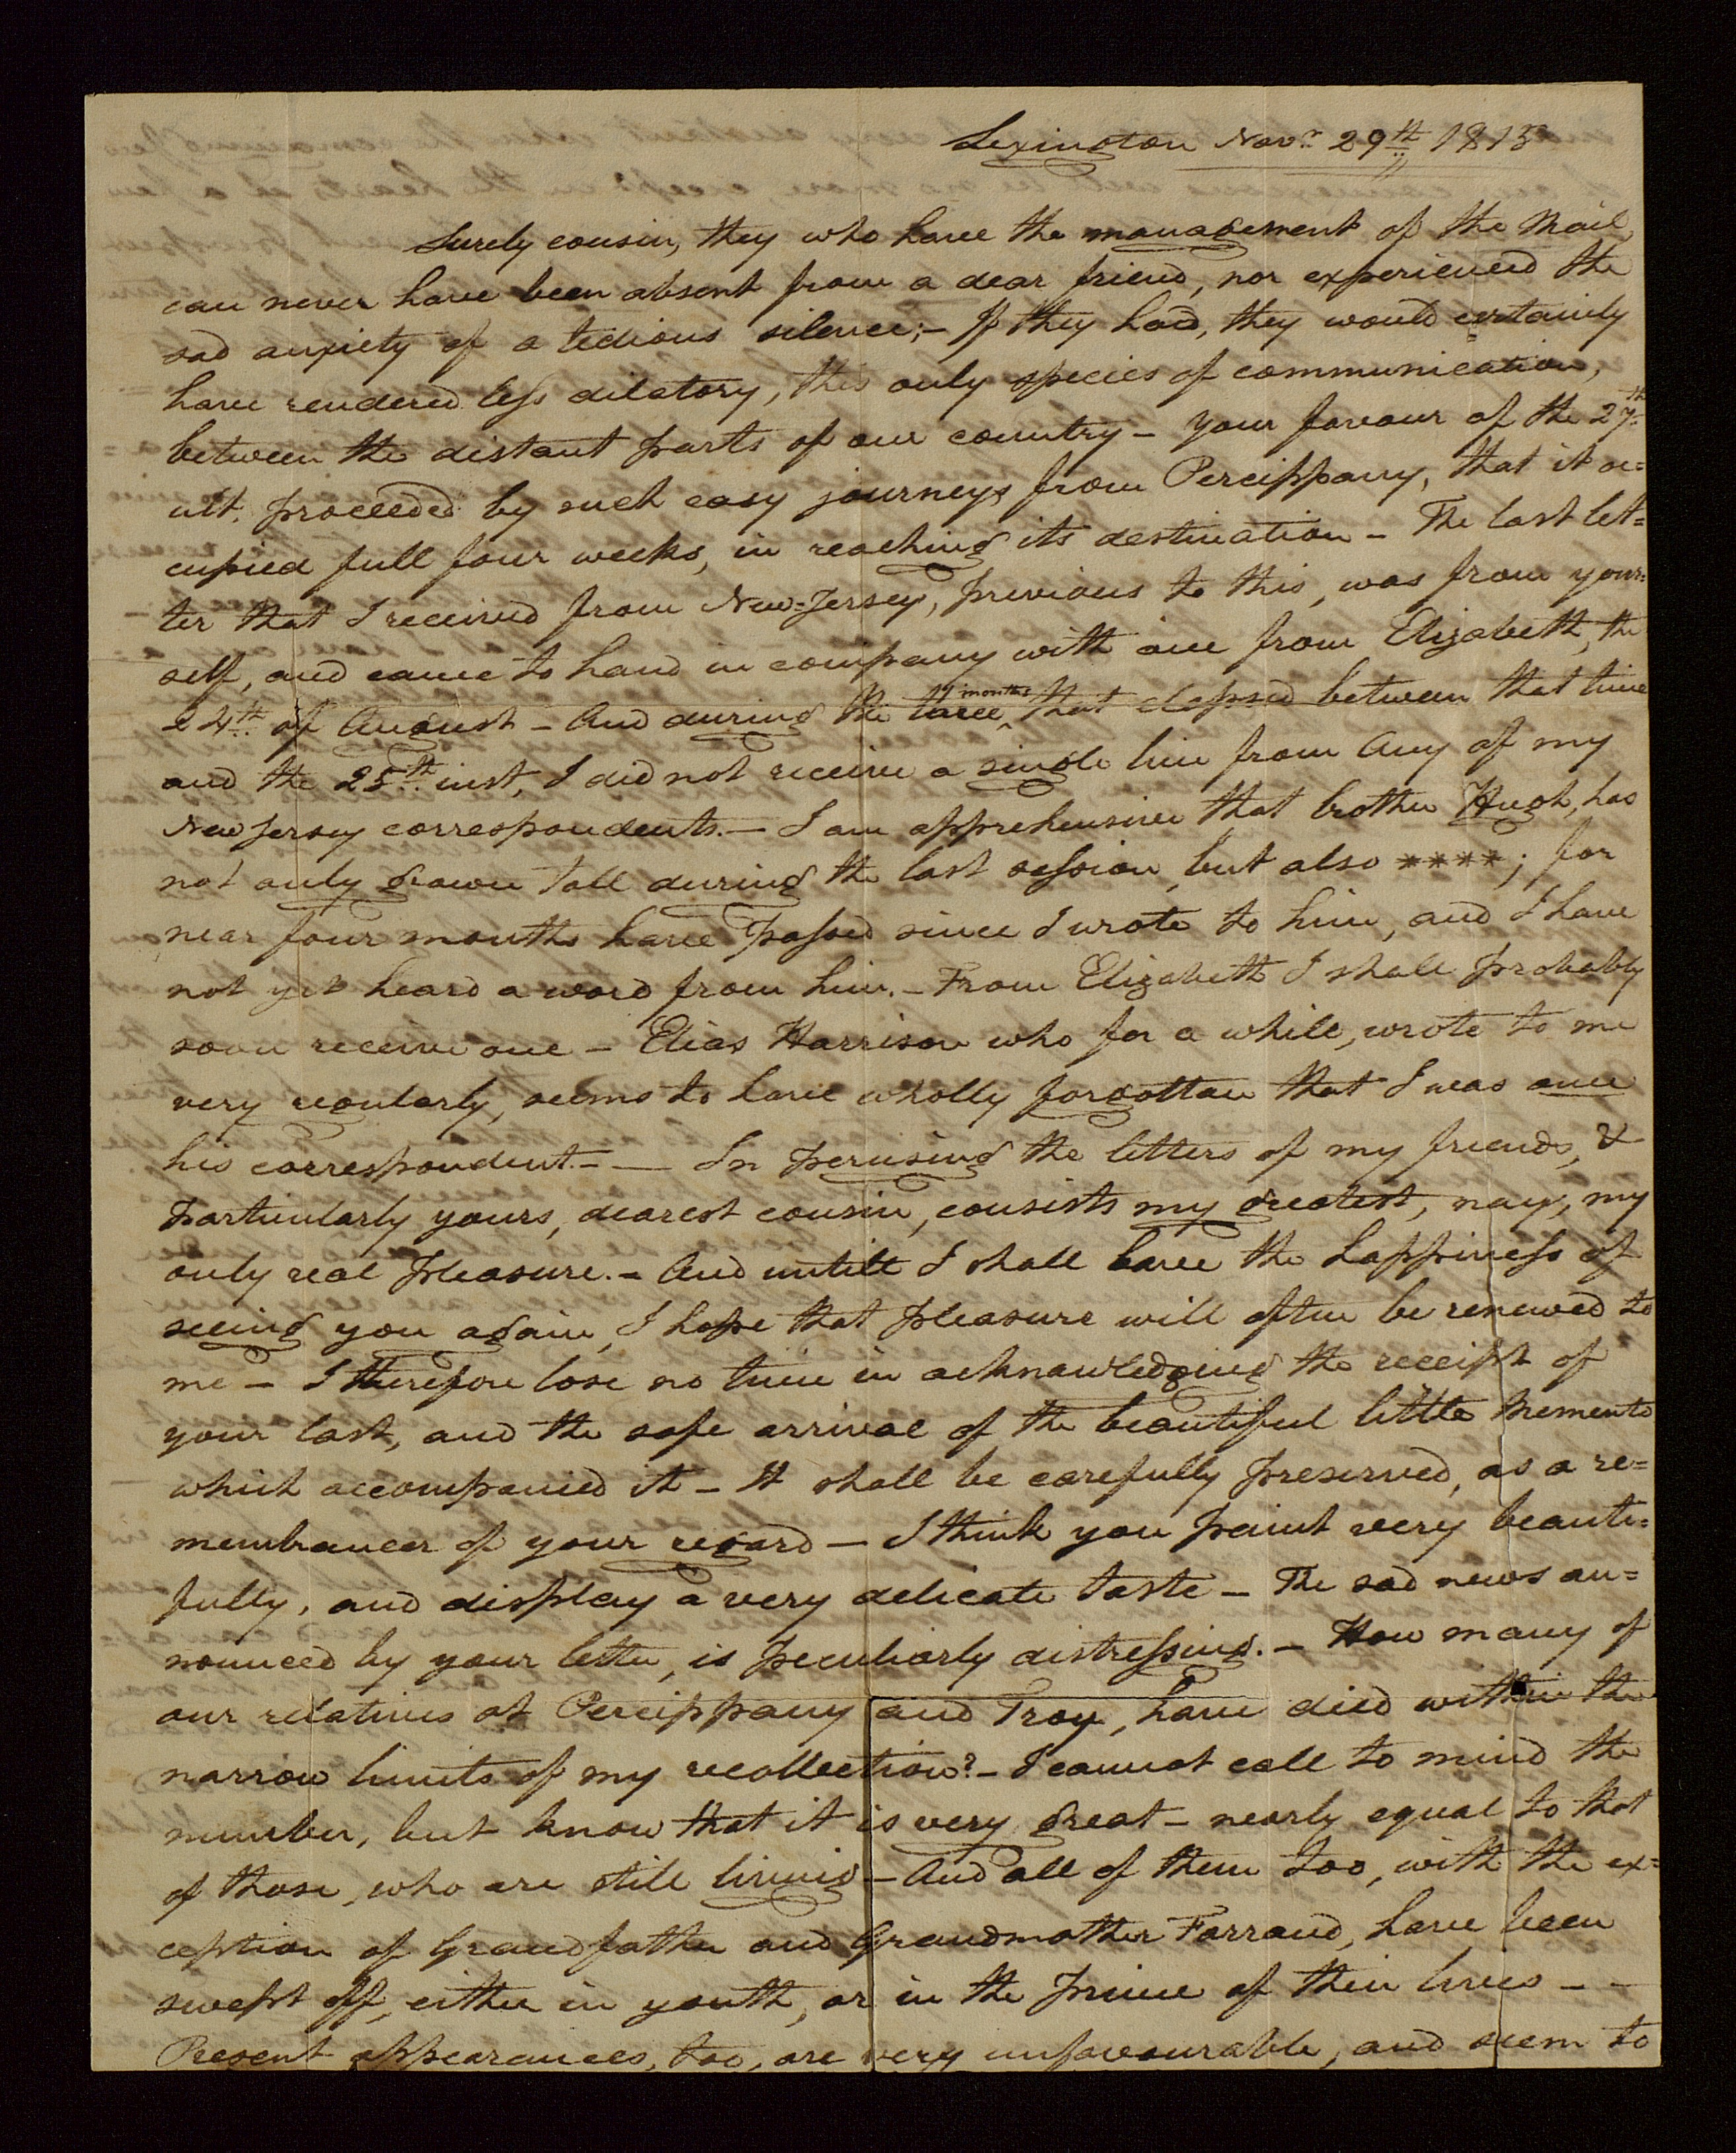 Lexington Novr. 29th 1815
Surely cousin, they who have the management of the Mail,
can never have been absent from a dear friend, nor experienced the
sad anxiety of a tedious silence;- If they had, they would certainly
have rendered less dilatory, this only species of communication,
between the distant parts of our country- Your favour of the 27th
ult. proceeded by such easy journeys from Percippany, that it oc=
cupied full four weeks, in reaching its destination - The last let=
ter that I received from New=Jersey, previous to this, was from your=
self, and came to hand in company with one from Elizabeth, the
24th of August - And during the three months that elapsed between that time
and the 25th inst, I did not receive a single line from any of my
New Jersey correspondents.- I am apprehensive that brother Hugh, has
not only grown tall during the last session, but also ****; for
near four months have passed since I wrote to him, and I have
not yet heard a word from him.- From Elizabeth I shall probably
soon receive one - Elias Harrison who for a while, wrote to me
very regularly, seems to have wholly forgotten that I was once
his correspondent.- - In perusing the letters of my friends, &
particularly yours, dearest cousin, consists my greatest, nay, my
only real pleasure.- And untill I shall have the happiness of
seeing you again, I hope that pleasure will often be renewed to
me - I therefore lose no time in acknowledging the receipt of
your last, and the safe arrival of the beautiful little Memento
which accompanied it - It shall be carefully preserved, as a re=
membrancer of your regard - I think you paint very beauti=
fully, and display a very delicate taste - The sad news an=
nounced by your letter, is peculiarly distressing.- How many of
our relatives at Percippany and Troy, have died within the
narrow limits of my recollection?- I cannot call to mind the
number, but know that it is very great - nearly equal to that
of those, who are still living - And all of them too, with the ex=
ception of Grandfather and Grandmother Farrand, have been
swept off, either in youth, or in the prime of their lives - -
Present appearances, too, are very unfavourable, and seem to